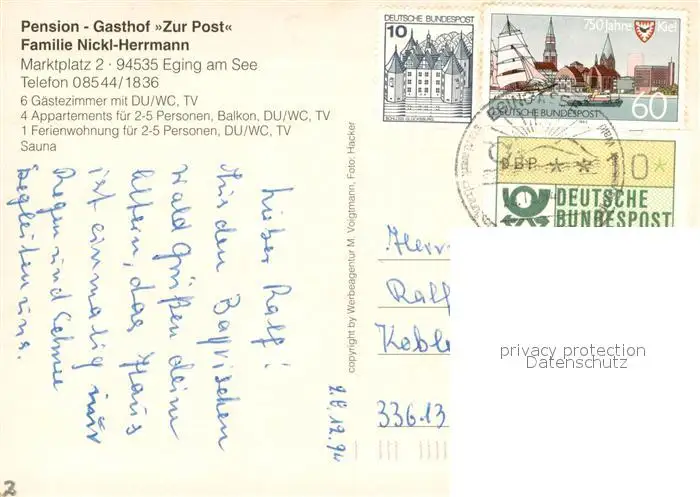 Pension - Gasthof »Zur Post«
Familie Nickl-Herrmann
Marktplatz 2 · 94535 Eging am See
Telefon 08544/1836
6 Gästezimmer mit DU/WC, TV
4 Appartements für 2-5 Personen, Balkon, DU/WC, TV
1 Ferienwohnung für 2-5 Personen, DU/WC, TV
Sauna
Lieber Ralf!
Aus den Bayrischen
Wald grüßen deine
Eltern, das Haus
ist einmalig nur
Regen und Schnee
begleiten uns.
copyright by Werbeagentur M. Voigtmann, Foto: Hacker
10
DEUTSCHE BUNDESPOST
SCHLOSS GLÜCKSBURG
750 Jahre Kiel
DEUTSCHE BUNDESPOST
60
DBP ** 10*
DEUTSCHE
BUNDESPOST
Herr
Ralf
33613
privacy protection
Datenschutz
2